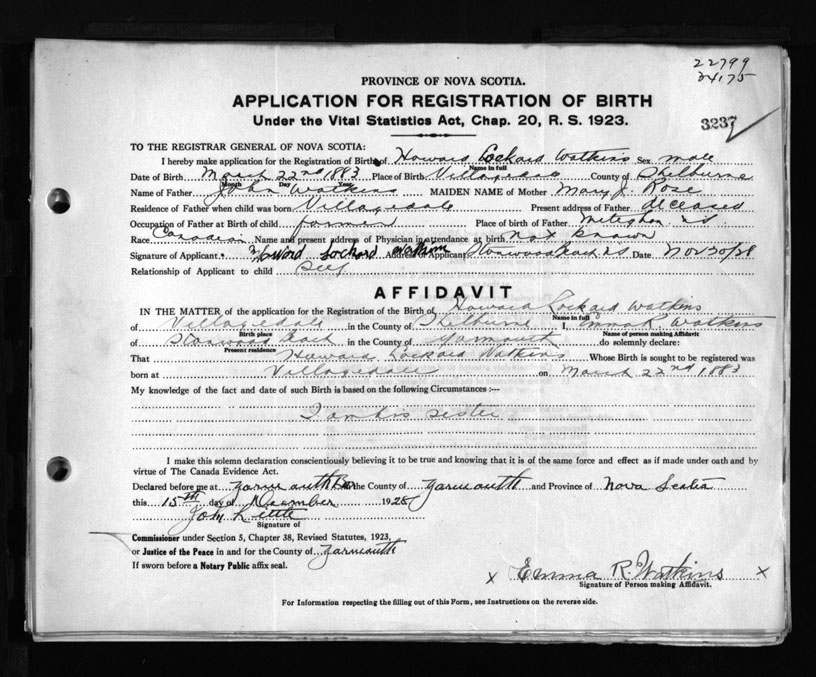 22799
24175
PROVINCE OF NOVA SCOTIA.
APPLICATION FOR REGISTRATION OF BIRTH
Under the Vital Statistics Act, Chap. 20, R. S. 1923.
3237
TO THE REGISTRAR GENERAL OF NOVA SCOTIA:
I hereby make application for the Registration of Birth of Howard Lockard Watkins Sex male
Name in full
Date of Birth March 22nd 1883 Place of Birth Villagedale County of Shelburne
Month Day Year
Name of Father John Watkins MAIDEN NAME of Mother Mary J. Rose
Residence of Father when child was born Villagedale Present address of Father deceased
Occupation of Father at Birth of child farmer Place of birth of Father Meteghan NS
Race Canadian Name and present address of Physician in attendance at birth not known
Signature of Applicant. Howard Lockard Watkins Address of Applicant NS Date Nov 30/28
Relationship of Applicant to child self
AFFIDAVIT
IN THE MATTER of the application for the Registration of the Birth of Howard Lockard Watkins
Name in full
of Villagedale in the County of Shelburne I, Emma R. Watkins
Birth place Name of person making Affidavit
of in the County of Yarmouth do solemnly declare:
Present residence
That Howard Lockard Watkins Whose Birth is sought to be registered was
born at Villagedale on March 22nd 1883
My knowledge of the fact and date of such Birth is based on the following Circumstances :—
I am his sister
I make this solemn declaration conscientiously believing it to be true and knowing that it is of the same force and effect as if made under oath and by
virtue of The Canada Evidence Act.
Declared before me at Yarmouth in the County of Yarmouth and Province of Nova Scotia
this 15th day of December 1928
John
Signature of
Commissioner under Section 5, Chapter 38, Revised Statutes, 1923,
or Justice of the Peace in and for the County of Yarmouth
If sworn before a Notary Public affix seal.
x Emma R. Watkins x
Signature of Person making Affidavit.
For Information respecting the filling out of this Form, see Instructions on the reverse side.